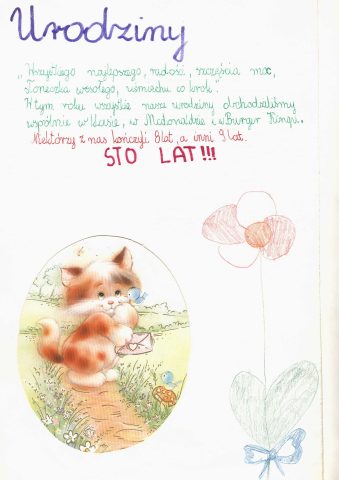 Urodziny
„Wszystkiego najlepszego, radości, szczęścia moc,
Słoneczka wesołego, uśmiechu co krok".
W tym roku wszystkie nasze urodziny obchodziliśmy
wspólnie w klasie, w Mcdonaldzie i w Burger Kingu.
Niektórzy z nas kończyli 8 lat, a inni 9 lat.
STO LAT!!!